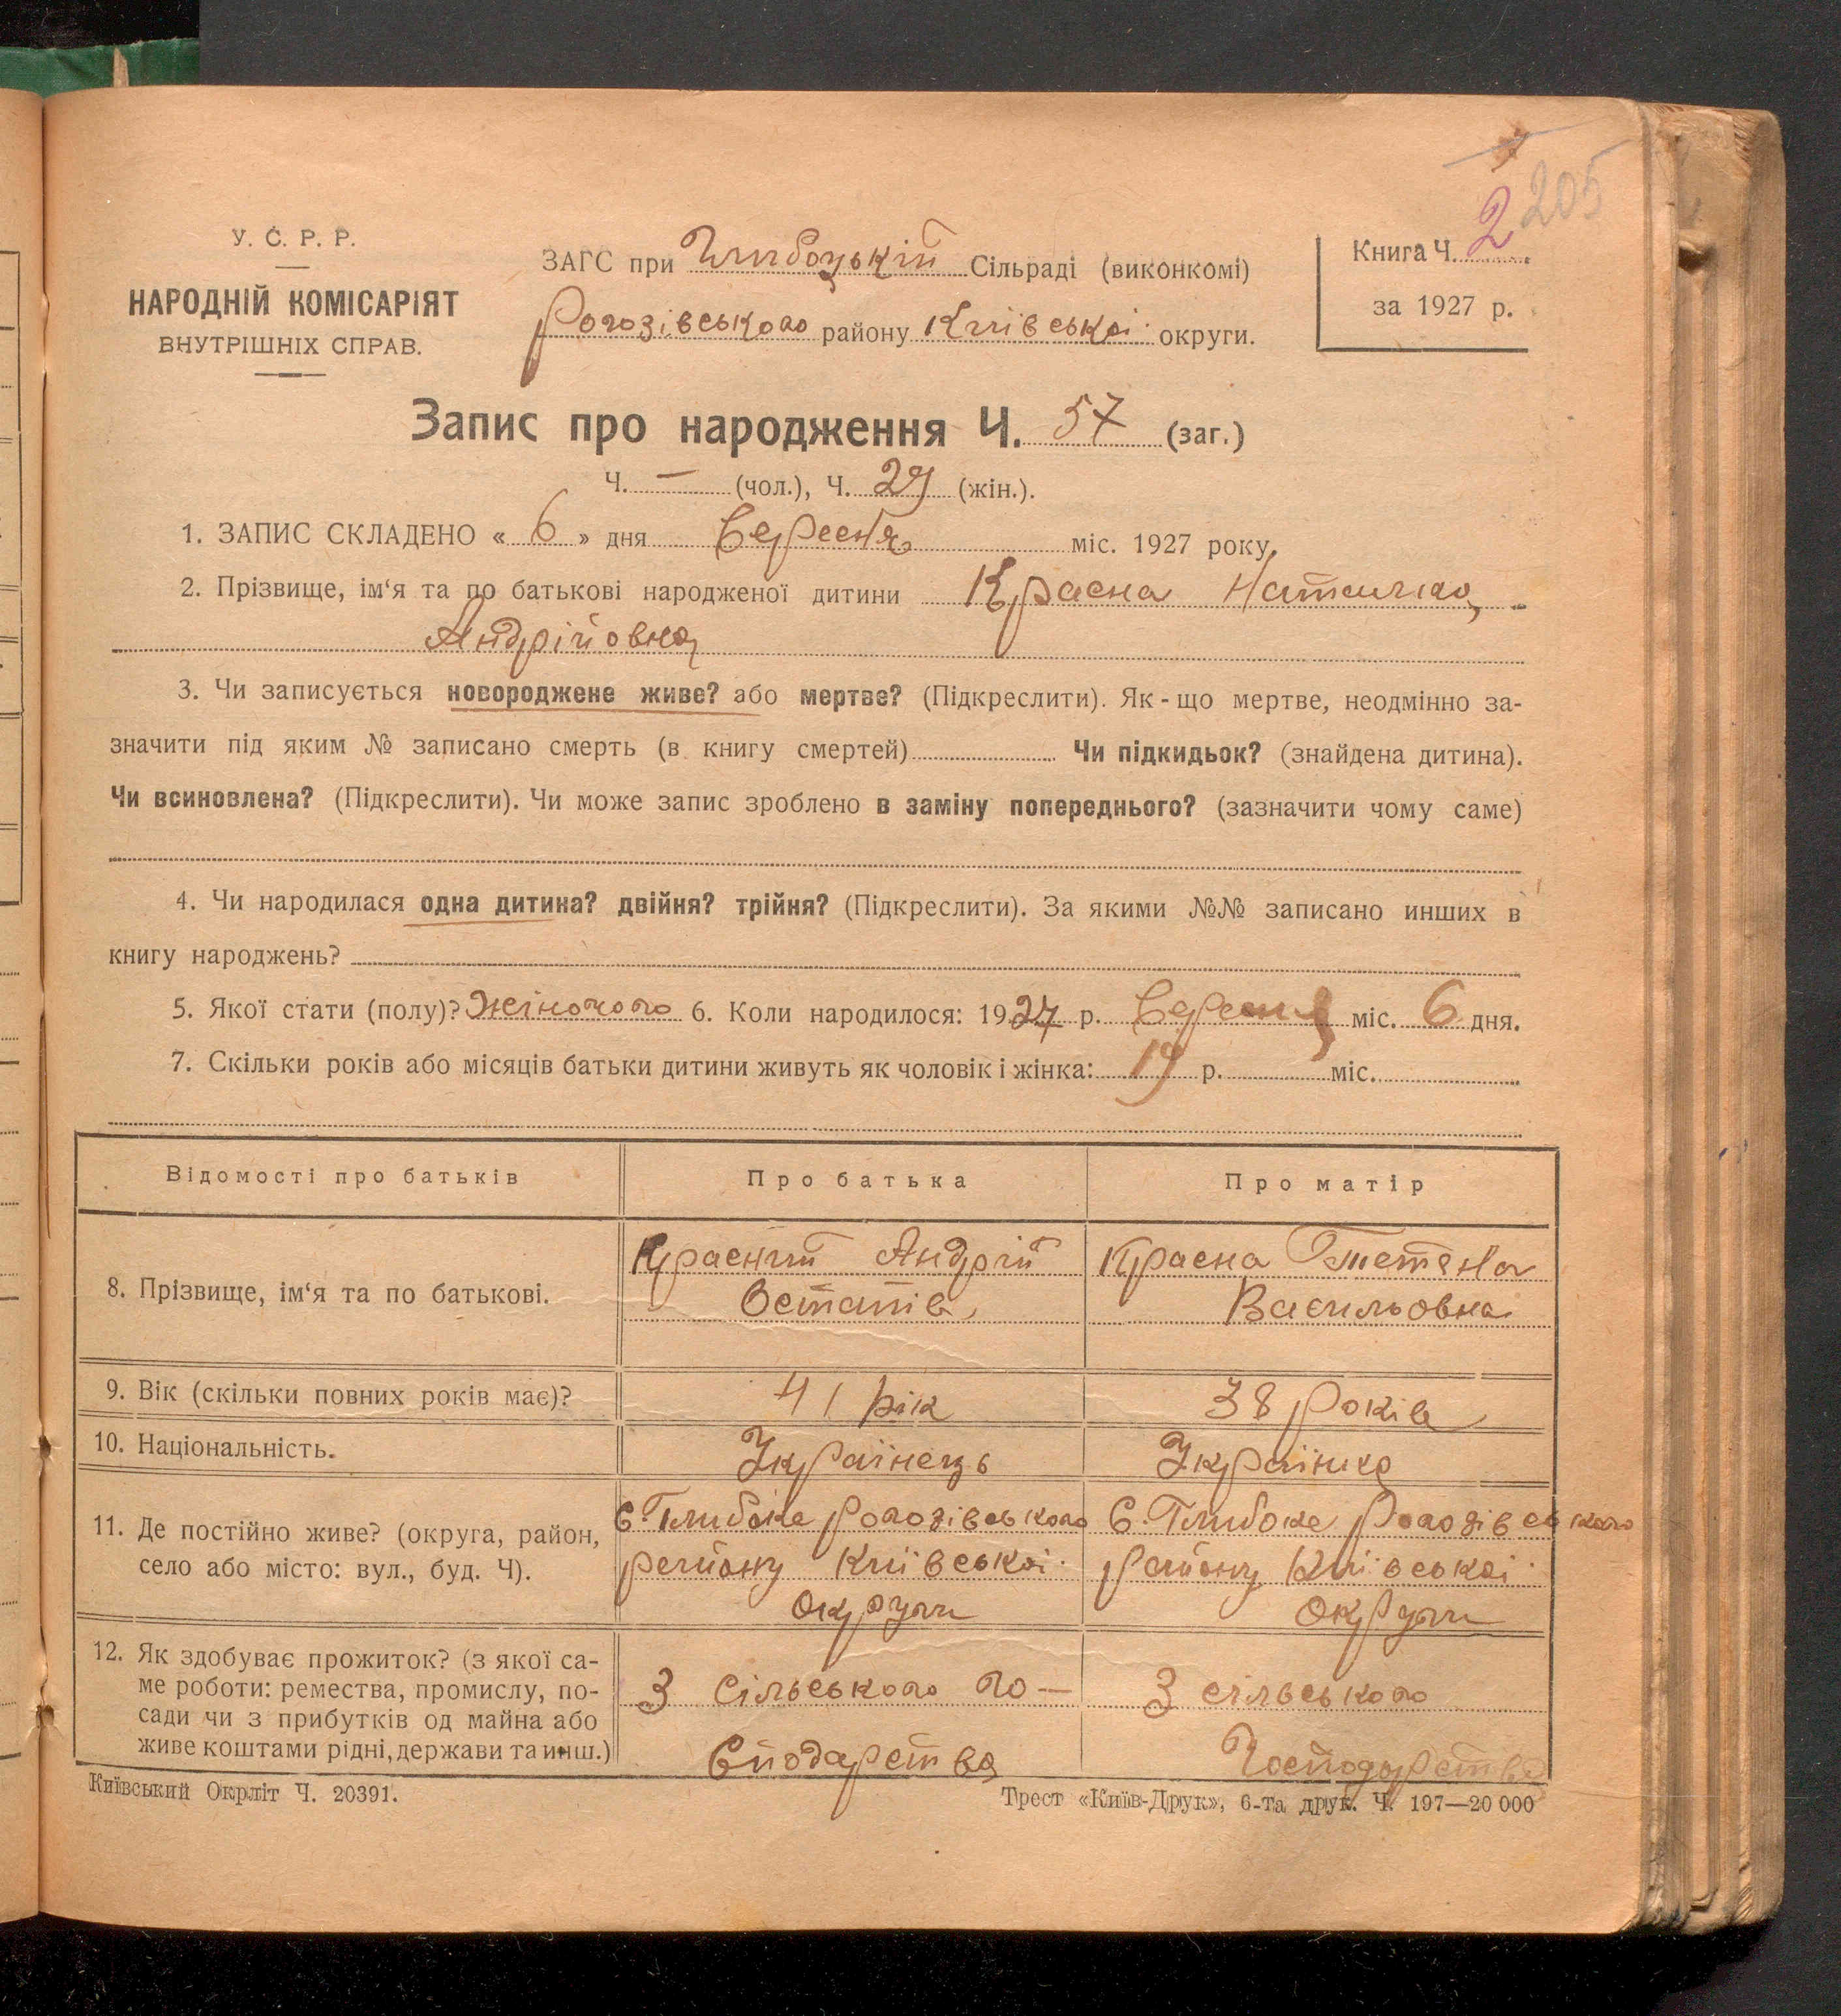 205
2
У. С. Р. Р.
НАРОДНІЙ КОМІСАРІЯТ
ВНУТРІШНІХ СПРАВ.
ЗАГС при Глибоцькій Сільраді (виконкомі)
Рогозівського району Київської округи.
Книга Ч.
за 1927 р.
Запис про народження Ч. 57 (заг.)
Ч. — (чол.), Ч. 29 (жін.).
1. ЗАПИС СКЛАДЕНО « 6 » дня Вересня міс. 1927 року.
2. Прізвище, ім‘я та по батькові народженої дитини Красна Наталка,
Андрійовна
3. Чи записується новороджене живе? або мертве? (Підкреслити). Як - що мертве, неодмінно за-
значити під яким № записано смерть (в книгу смертей) Чи підкидьок? (знайдена дитина).
Чи всиновлена? (Підкреслити). Чи може запис зроблено в заміну попереднього? (зазначити чому саме)
4. Чи народилася одна дитина? двійня? трійня? (Підкреслити). За якими №№ записано инших в
книгу народжень?
5. Якої стати (полу)? Жіночого 6. Коли народилося: 1927 р. Вересня міс. 6 дня.
7. Скільки років або місяців батьки дитини живуть як чоловік і жінка: 19 р. міс.
Відомості про батьків Про батька Про матір
8. Прізвище, ім‘я та по батькові.
Красний Андрій
Остапів
Красна Тетяна
Васильовна
9. Вік (скільки повних років має)? 41 рік 38 років
10. Національність. Українець Українка
11. Де постійно живе? (округа, район,
село або місто: вул., буд. Ч).
С. Глибоке Рогозівського
району Київської
округи
С. Глибоке Рогозівського
району Київської
округи
12. Як здобуває прожиток? (з якої са-
ме роботи: ремества, промислу, по-
сади чи з прибутків од майна або
живе коштами рідні, держави та инш.)
З сільського го—
сподарства
З сільського
Господарства
Київський Окрліт Ч. 20391.
Трест «Київ-Друк», 6-та друк. Ч. 197—20 000